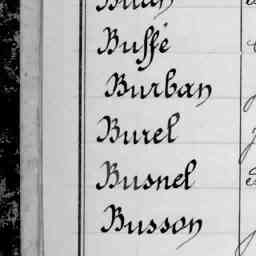 Buffé
Burban
Burel
Busnel
Busson